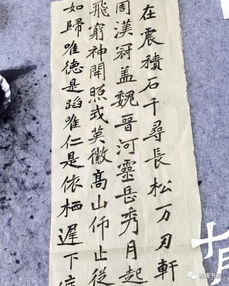 在震積石千尋長松万刃軒
周漢冠盖魏晉河靈岳秀月起
飛窮神開照式莫徽高山仰止從
如歸唯德是蹈唯仁是依栖遲下